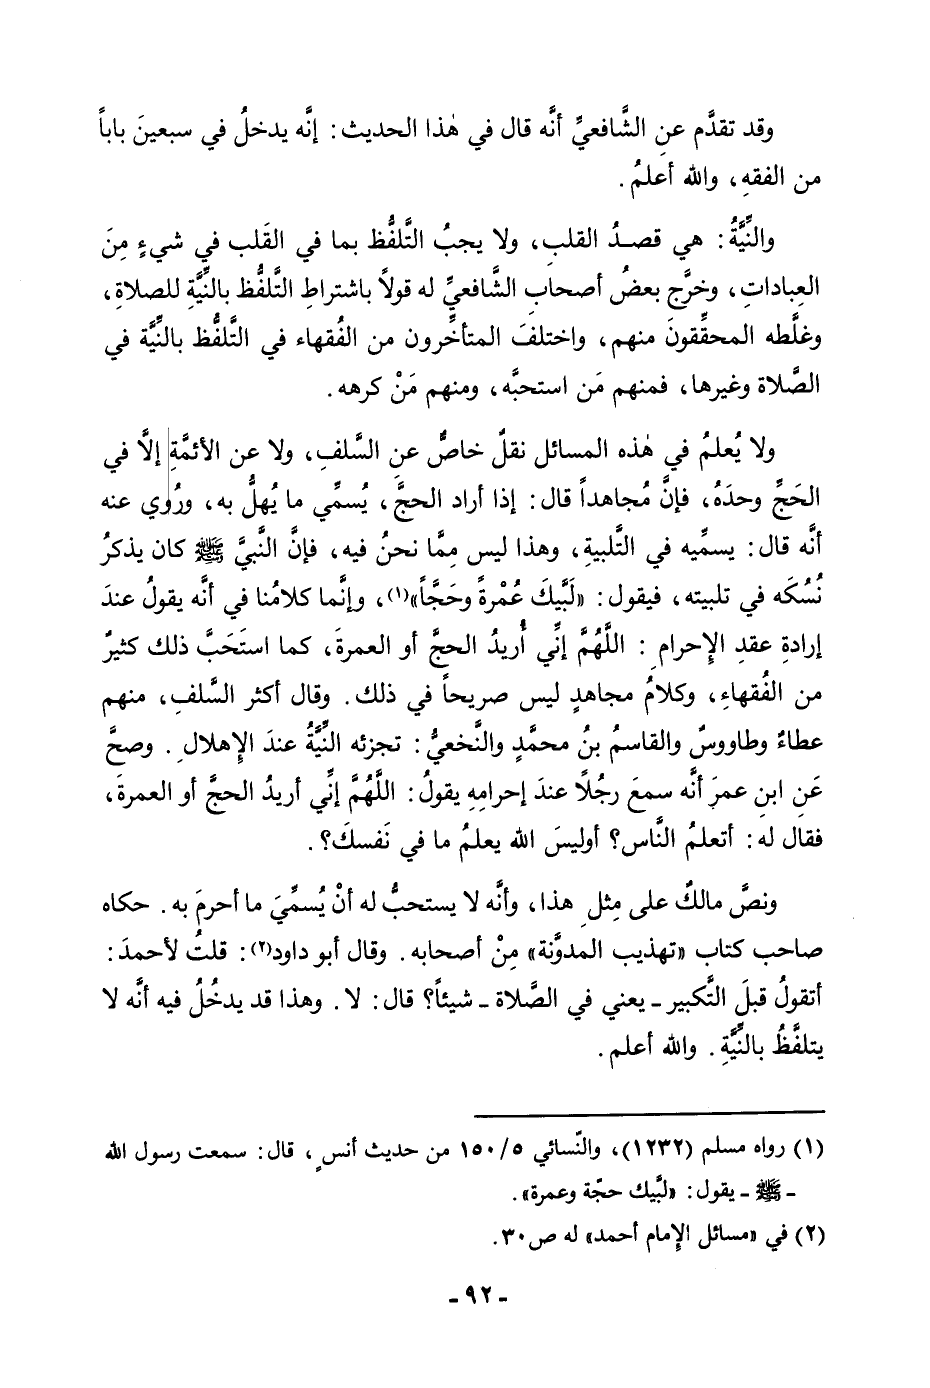 وقد تقدَّم عنِ الشَّافعيِّ أنَّه قال في هٰذا الحديث: إنَّه يدخلُ في سبعينَ باباً
من الفقهِ، والله أعلمُ.
والنِّيَّةُ: هي قصدُ القلبِ، ولا يجبُ التَّلفُّظ بما في القَلب في شيءٍ مِنَ
العِباداتِ، وخرَّج بعضُ أصحابِ الشَّافعيِّ له قولاً باشتراطِ التَّلفُّظ بالنِّيَّةِ للصلاةِ،
وغلَّطه المحقِّقونَ منهم، واختلفَ المتأخِّرون من الفُقهاء في التَّلفُّظ بالنِّيَّة في
الصَّلاة وغيرها، فمنهم مَن استحبَّه، ومنهم مَنْ كرهه.
ولا يُعلمُ في هٰذه المسائل نقلٌ خاصٌّ عنِ السَّلفِ، ولا عن الأئمَّةِ إلَّا في
الحَجِّ وحدَهُ، فإنَّ مُجاهداً قال: إذا أراد الحجَّ، يُسمِّي ما يُهلُّ به، ورُوي عنه
أنَّه قال: يسمِّيه في التَّلبيةِ، وهذا ليس مِمَّا نحنُ فيه، فإنَّ النَّبيَّ ﷺ كان يذكرُ
نُسُكَه في تلبيته، فيقول: «لَبَّيكَ عُمْرةً وحَجَّاً»(١)، وإنَّما كلامُنا في أنَّه يقولُ عندَ
إرادةِ عقدِ الإِحرامِ: اللَّهُمَّ إنِّي أُريدُ الحجَّ أو العمرةَ، كما استَحَبَّ ذلك كثيرٌ
من الفُقهاءِ، وكلامُ مجاهدٍ ليس صريحاً في ذلك. وقال أكثر السَّلفِ، منهم
عطاءٌ وطاووسٌ والقاسمُ بنُ محمَّدٍ والنَّخعيُّ: تجزئه النِّيَّةُ عندَ الإِهلالِ. وصحَّ
عَنِ ابنِ عمرَ أنَّه سمعَ رجُلًا عندَ إحرامِهِ يقولُ: اللَّهُمَّ إنِّي أريدُ الحجَّ أو العمرةَ،
فقال له: أتعلمُ النَّاس؟ أوليسَ الله يعلمُ ما في نَفسكَ؟.
ونصَّ مالكٌ على مِثلِ هذا، وأنَّه لا يستحبُّ له أنْ يُسمِّيَ ما أحرمَ به. حكاه
صاحب كتاب «تهذيب المدوَّنة» مِنْ أصحابه. وقال أبو داود(٢): قلتُ لأحمدَ:
أتقولُ قبلَ التَّكبير ـ يعني في الصَّلاة ـ شيئاً؟ قال: لا. وهذا قد يدخُلُ فيه أنَّه لا
يتلفَّظُ بالنِّيَّةِ. والله أعلم.
(١) رواه مسلم (١٢٣٢)، والنّسائي ١٥٠/٥ من حديث أنسٍ، قال: سمعت رسول الله
ـ ﷺ ـ يقول: «لبَّيك حجّة وعمرة».
(٢) في «مسائل الإِمام أحمد» له ص٣٠.
ـ ٩٢ ـ